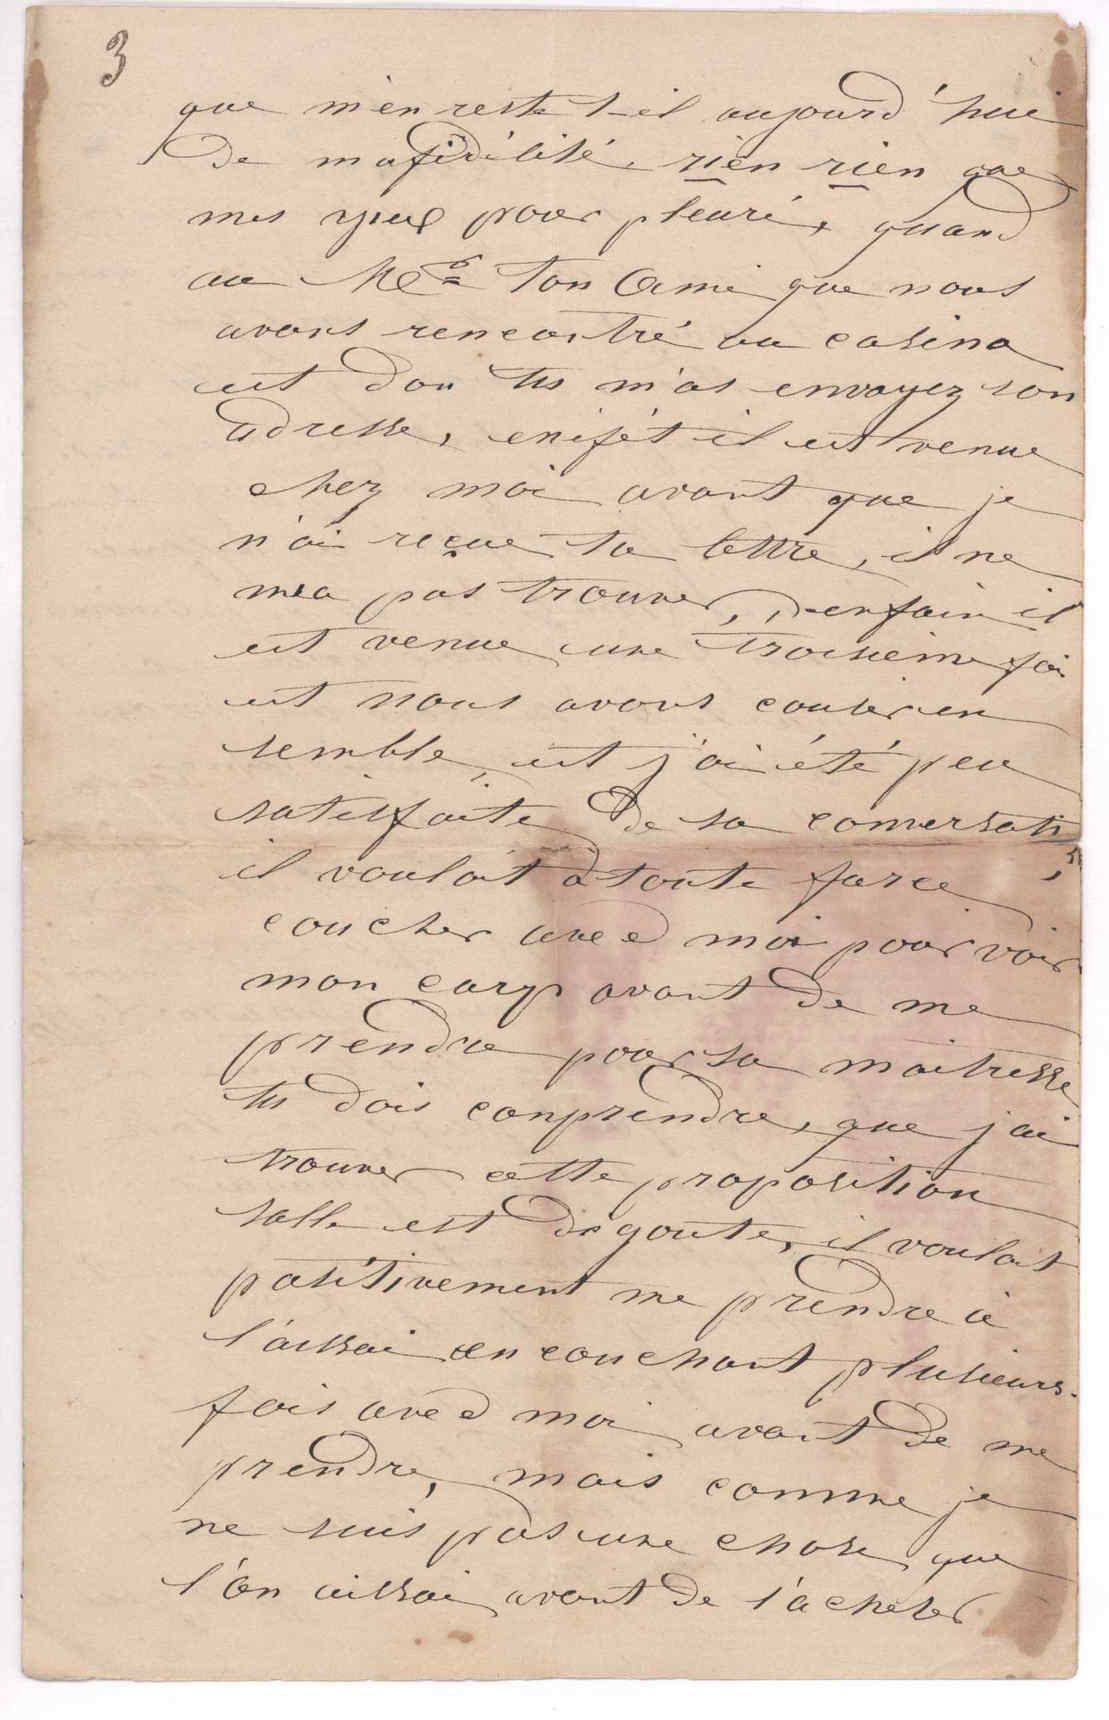 3
que m'en reste t-il aujourd'hui
de ma fidélité, rien rien que
mes yeux pour pleuré, quand
au Mr ton Ami que nous
avons rencontré au casino
et don tu m'as envoyez son
adresse, enifét il est venue
chez moi avant que je
n'ai reçue ta lettre, il ne
m'a pas trouver, enfain il
est venue une troisième foi
et nous avons couser en
semble, et j'ai été peu
satisfaite de sa conversati
il voulait à toute force
coucher avec moi pour voir
mon corp avant de me
prendre pour sa maitresse
tu dois conprendre, que j'ai
trouver cette proposition
salle est degoute, il voulait
positivement me prendre à
l'aissai en couchant plusieurs
fois avec moi avant de me
prendre, mais comme je
ne suis pas une chose que
l'on aissai avant de l'acheter